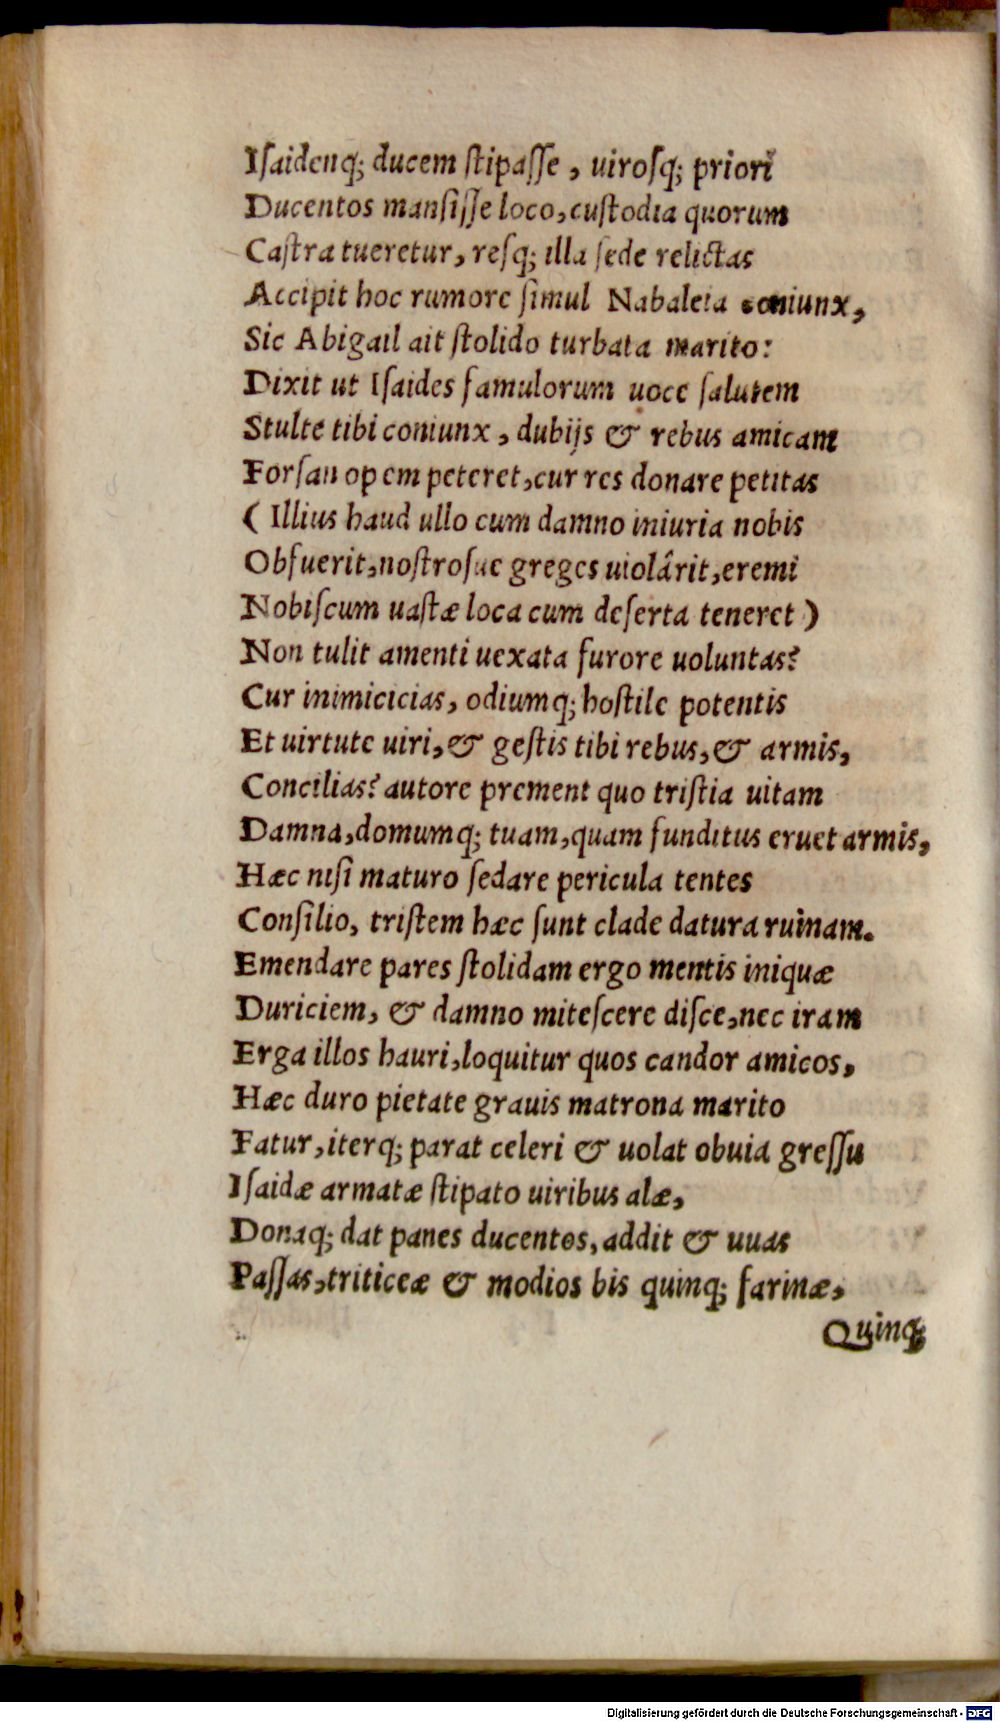 Iſaidenq; ducem ſtipaſſe, uirosq; priori
Ducentos manſiſſe loco, cuſtodia quorum
Caſtra tueretur, resq; illa ſede relictas
Accipit hoc rumore ſimul Nabaleia coniunx,
Sic Abigail ait ſtolido turbata marito:
Dixit ut Iſaides famulorum uoce ſalutem
Stulte tibi coniunx, dubijs & rebus amicam
Forſan opem peteret, cur res donare petitas
( Illius haud ullo cum damno iniuria nobis
Obfuerit, noſtrosue greges uiolârit, eremi
Nobiſcum uaſtæ loca cum deſerta teneret )
Non tulit amenti uexata furore uoluntas?
Cur inimicicias, odiumq; hoſtile potentis
Et uirtute uiri, & geſtis tibi rebus, & armis,
Concilias? autore prement quo triſtia uitam
Damna, domumq; tuam, quam funditus eruet armis,
Hæc niſi maturo ſedare pericula tentes
Conſilio, triſtem hæc ſunt clade datura ruinam.
Emendare pares ſtolidam ergo mentis iniquæ
Duriciem, & damno miteſcere diſce, nec iram
Erga illos hauri, loquitur quos candor amicos,
Hæc duro pietate grauis matrona marito
Fatur, iterq; parat celeri & uolat obuia greſſu
Iſaidæ armatæ ſtipato uiribus alæ,
Donaq; dat panes ducentos, addit & uuas
Paſſas, triticeæ & modios bis quinq; farinæ,
Quinq;
Digitalisierung gefördert durch die Deutsche Forschungsgemeinschaft - DFG